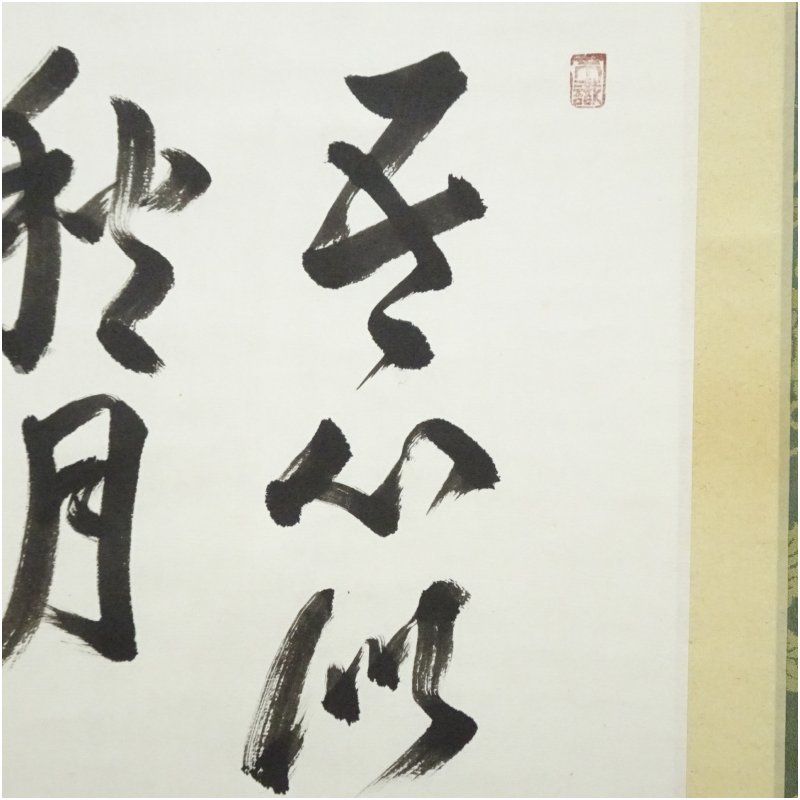 吾心似
秋月